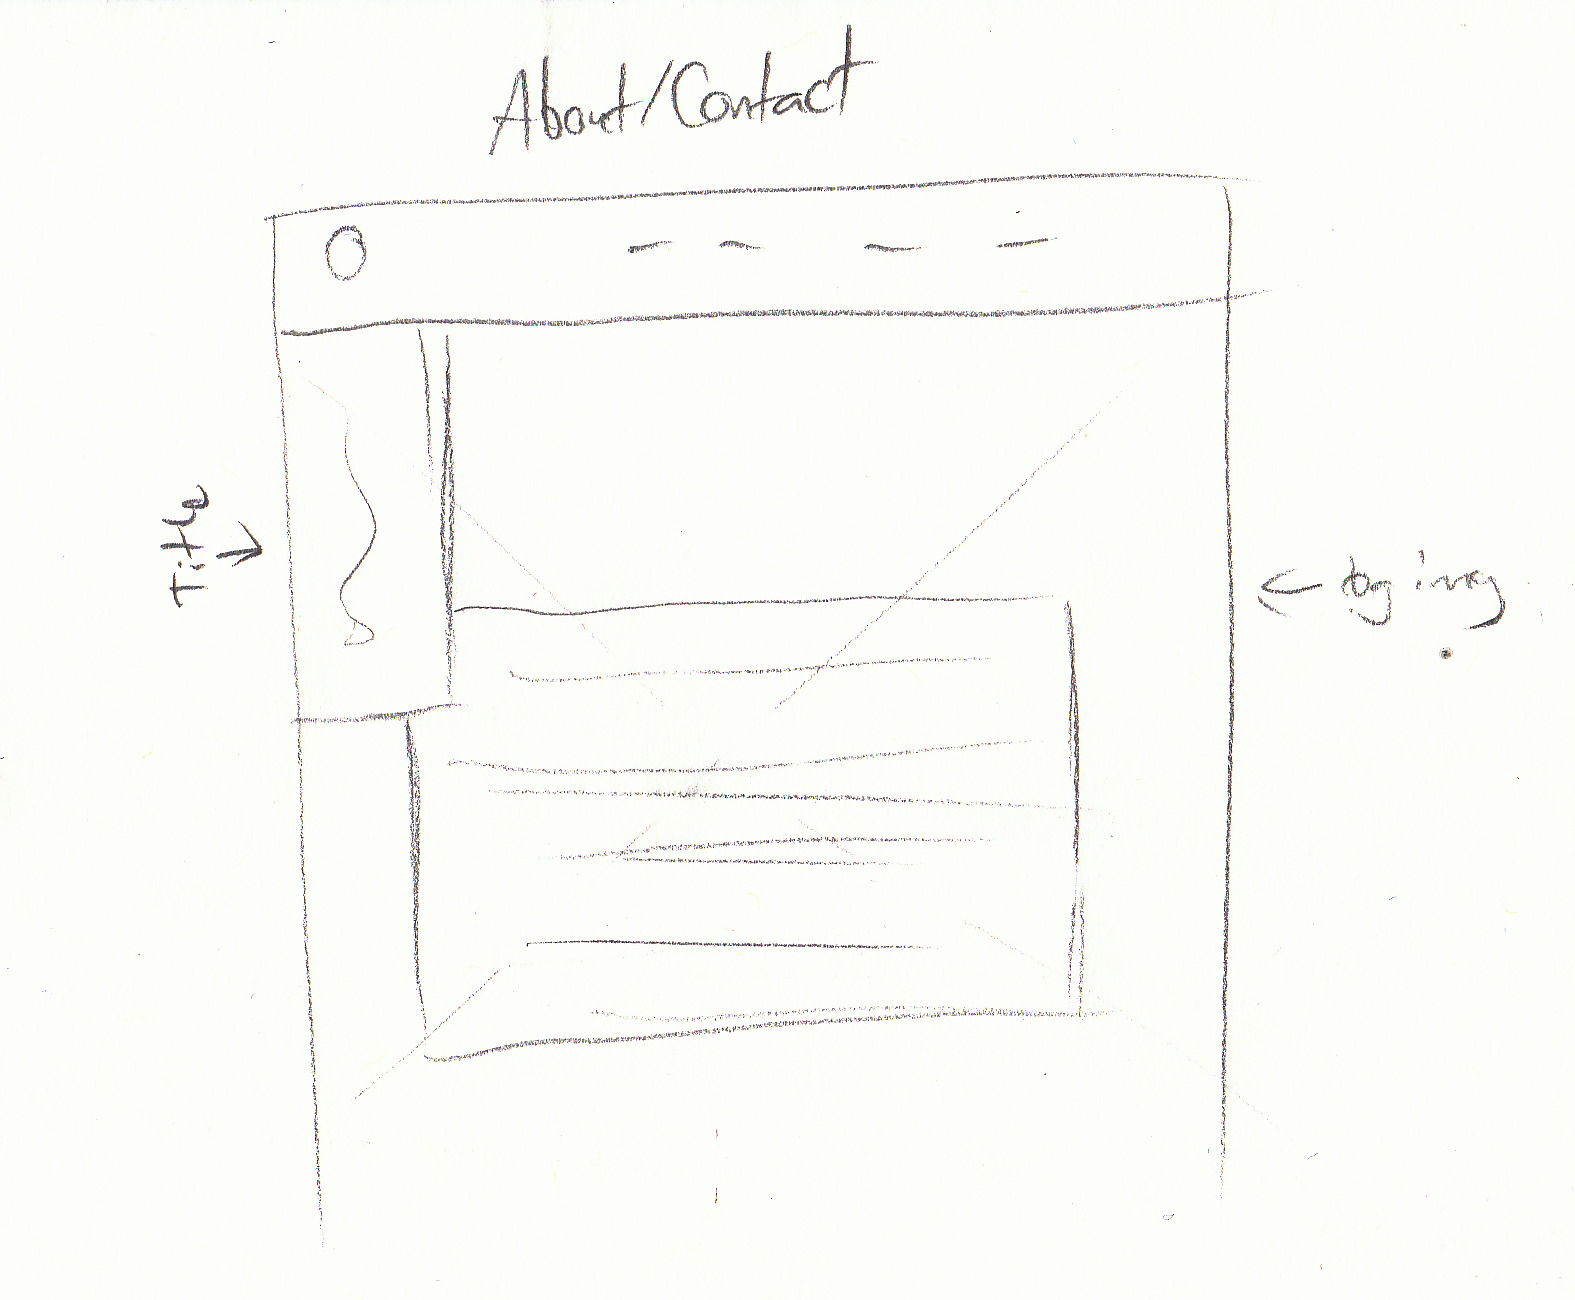 About/Contact
Title
bg img